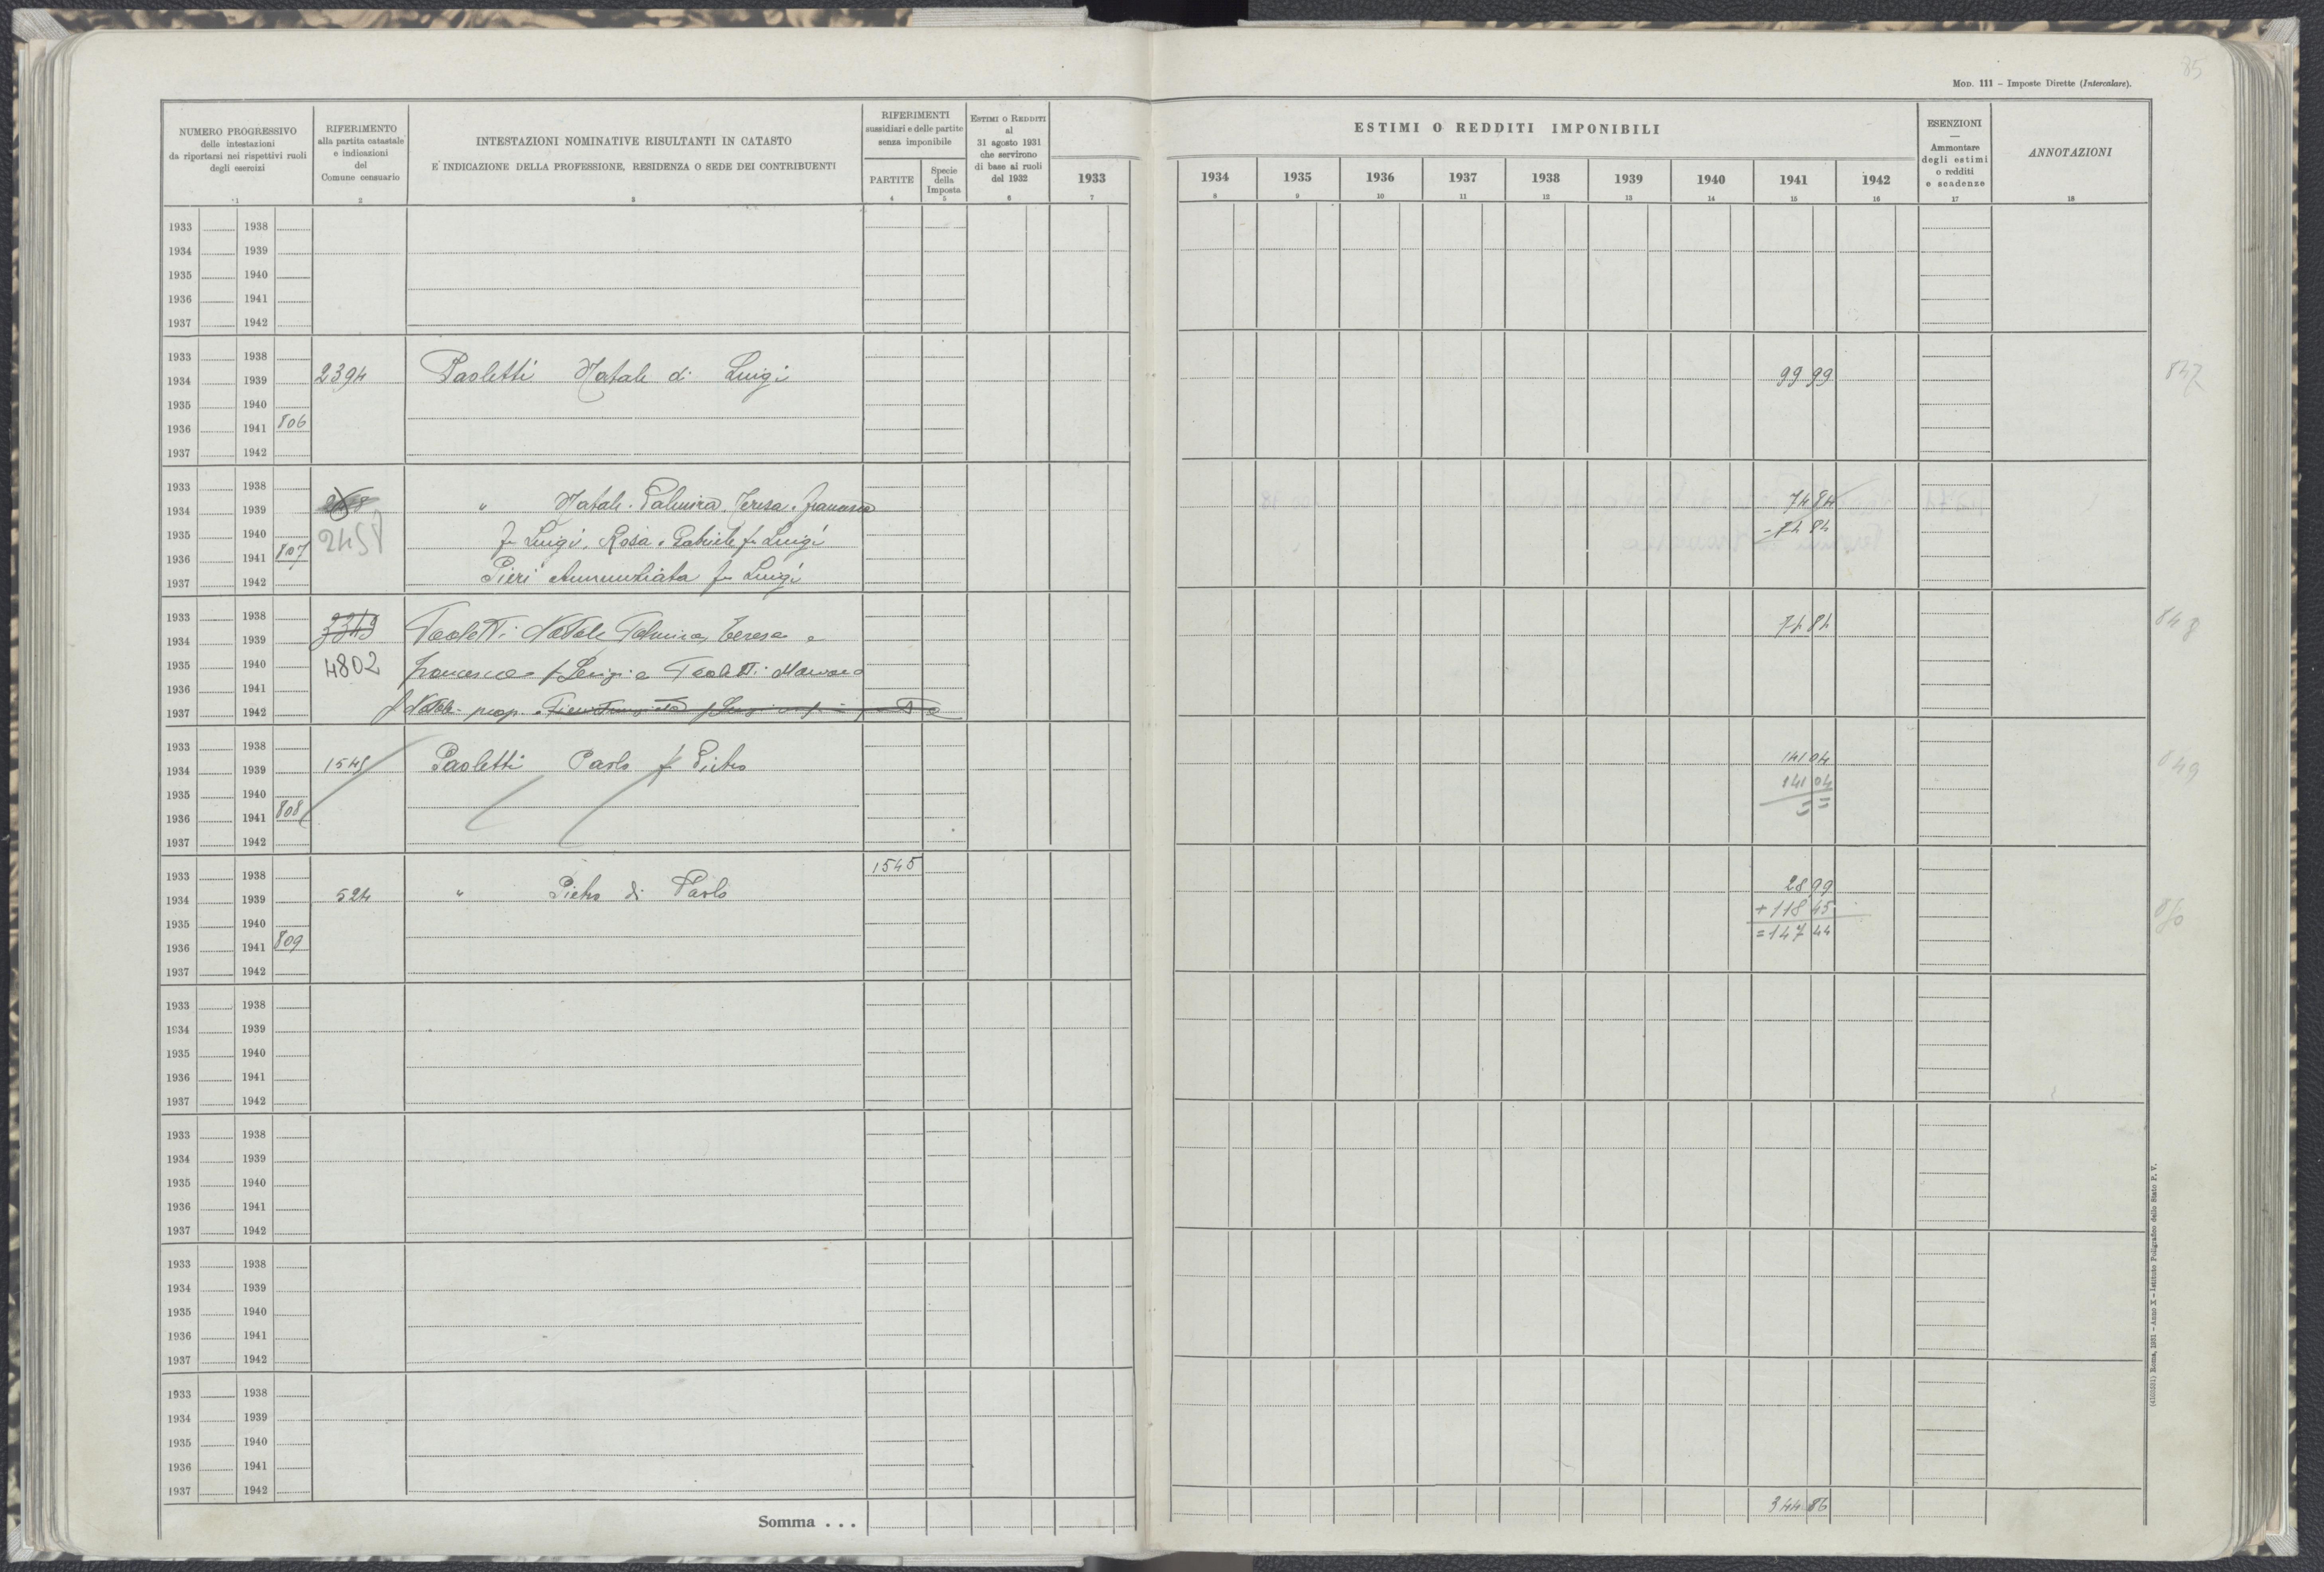 85
MOD. 111 – Imposte Dirette (Intercalare).
NUMERO PROGRESSIVO
delle intestazioni
da riportarsi nei rispettivi ruoli
degli esercizi
1
RIFERIMENTO
alla partita catastale
e indicazioni
del
Comune censuario
2
INTESTAZIONI NOMINATIVE RISULTANTI IN CATASTO
E INDICAZIONE DELLA PROFESSIONE, RESIDENZA O SEDE DEI CONTRIBUENTI
3
RIFERIMENTI
sussidiari e delle partite
senza imponibile
PARTITE
4
Specie
della
Imposta
5
ESTIMI O REDDITI
al
31 agosto 1931
che servirono
di base ai ruoli
del 1932
6
1933
7
ESTIMI O REDDITI IMPONIBILI
1934 1935 1936 1937 1938 1939 1940 1941 1942
8 9 10 11 12 13 14 15 16
ESENZIONI
—
Ammontare
degli estimi
o redditi
e scadenze
17
ANNOTAZIONI
18
1933 1938
1934 1939
1935 1940
1936 1941
1937 1942
1933 1938
1934 1939 2394 Paoletti Natale di Luigi 99 99 847
1935 1940
1936 1941 806
1937 1942
1933 1938
1934 1939 " Natale. Palmira. Teresa. Francesca 74 84
1935 1940 2458 fu Luigi, Rosa. Gabriele fu Luigi - 74 84
1936 1941 807
1937 1942 Pieri Annunziata fu Luigi
1933 1938 3349
1934 1939 Paoletti Natale Palmira, Teresa e 74 84 848
1935 1940 4802 Francesca f Luigi e Paoletti
1936 1941
1937 1942 f Natale prop.
1933 1938
1934 1939 1545 Paoletti Paolo f Pietro 141 04 849
1935 1940 141 04
1936 1941 808 = =
1937 1942
1933 1938 1545
1934 1939 524 " Pietro di Paolo 28 99
1935 1940 + 118 45 850
1936 1941 809 = 147 44
1937 1942
1933 1938
1934 1939
1935 1940
1936 1941
1937 1942
1933 1938
1934 1939
1935 1940
1936 1941
1937 1942
1933 1938
1934 1939
1935 1940
1936 1941
1937 1942
1933 1938
1934 1939
1935 1940
1936 1941
1937 1942
Somma . . . 344 86
(4103531) Roma, 1931 – Anno X – Istituto Poligrafico dello Stato P. V.